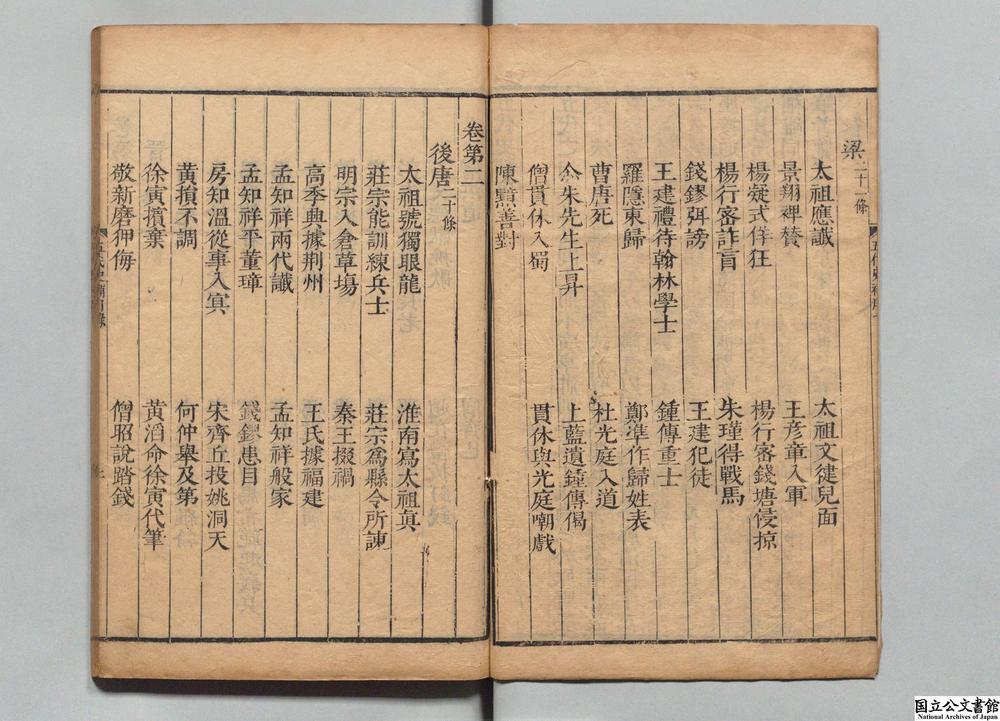 梁二十一條
太祖應讖 太祖文徤兒面
景翔裨賛 王彦章入軍
楊凝式佯狂 楊行密錢塘侵掠
楊行密詐盲 朱瑾得戰馬
錢鏐弭謗 王建犯徒
王建禮待翰林學士 鍾傳重士
羅隱東歸 鄭凖作歸姓表
曹唐死 杜光庭入道
朱先生上昇 上藍遺鍾傳偈
僧貫休入蜀 貫休與光庭嘲戲
陳黯善對
卷第二
後唐二十條
太祖號獨眼龍 淮南寫太祖真
莊宗能訓練兵士 莊宗為縣令所諫
明宗入倉草場 秦王掇禍
高季興據荆州 王氏據福建
孟知祥兩代讖 孟知祥般家
孟知祥平董璋 錢鏐患目
房知溫從事入冥 宋齊丘投姚洞天
黄損不調 何仲舉及第
徐寅擯棄 黄滔命徐寅代筆
敬新磨狎侮 僧昭說踏錢
国立公文書館
National Archives of Japan